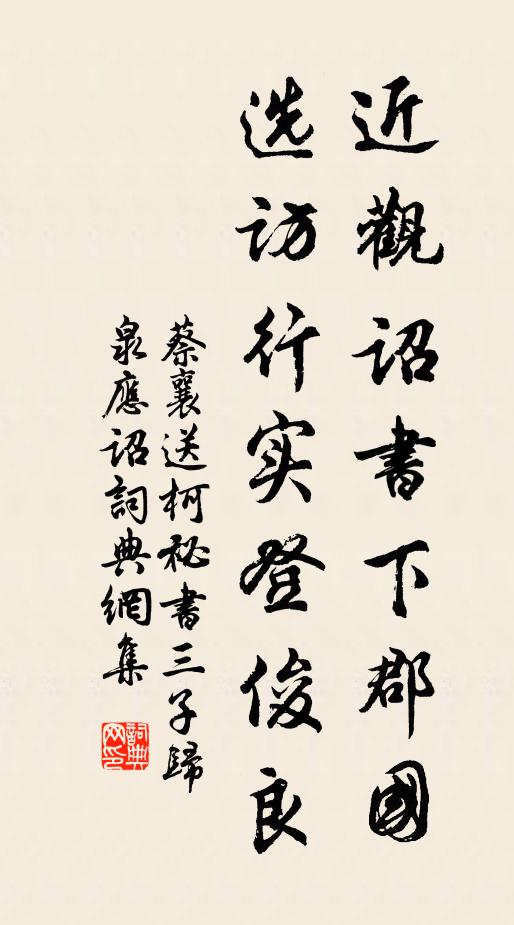 近觀詔書下郡國
选访行实登俊良
蔡襄送柯祕書三子歸
泉應詔詞典網集
詞典網印